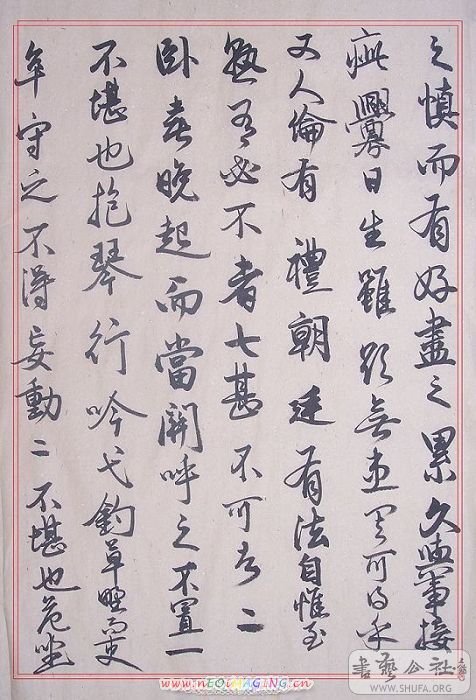 之慎而有好盡之累久與事接
疵釁日生雖欲無患其可得乎
又人倫有禮朝廷有法自惟至
熟有必不者七甚不可者二
卧喜晚起而當關呼之不置一
不堪也抱琴行吟弋釣草野而吏
卒守之不得妄動二不堪也危坐
www.nEOiMAGING.cn
書藝公社
WWW.SHUFA.ORG